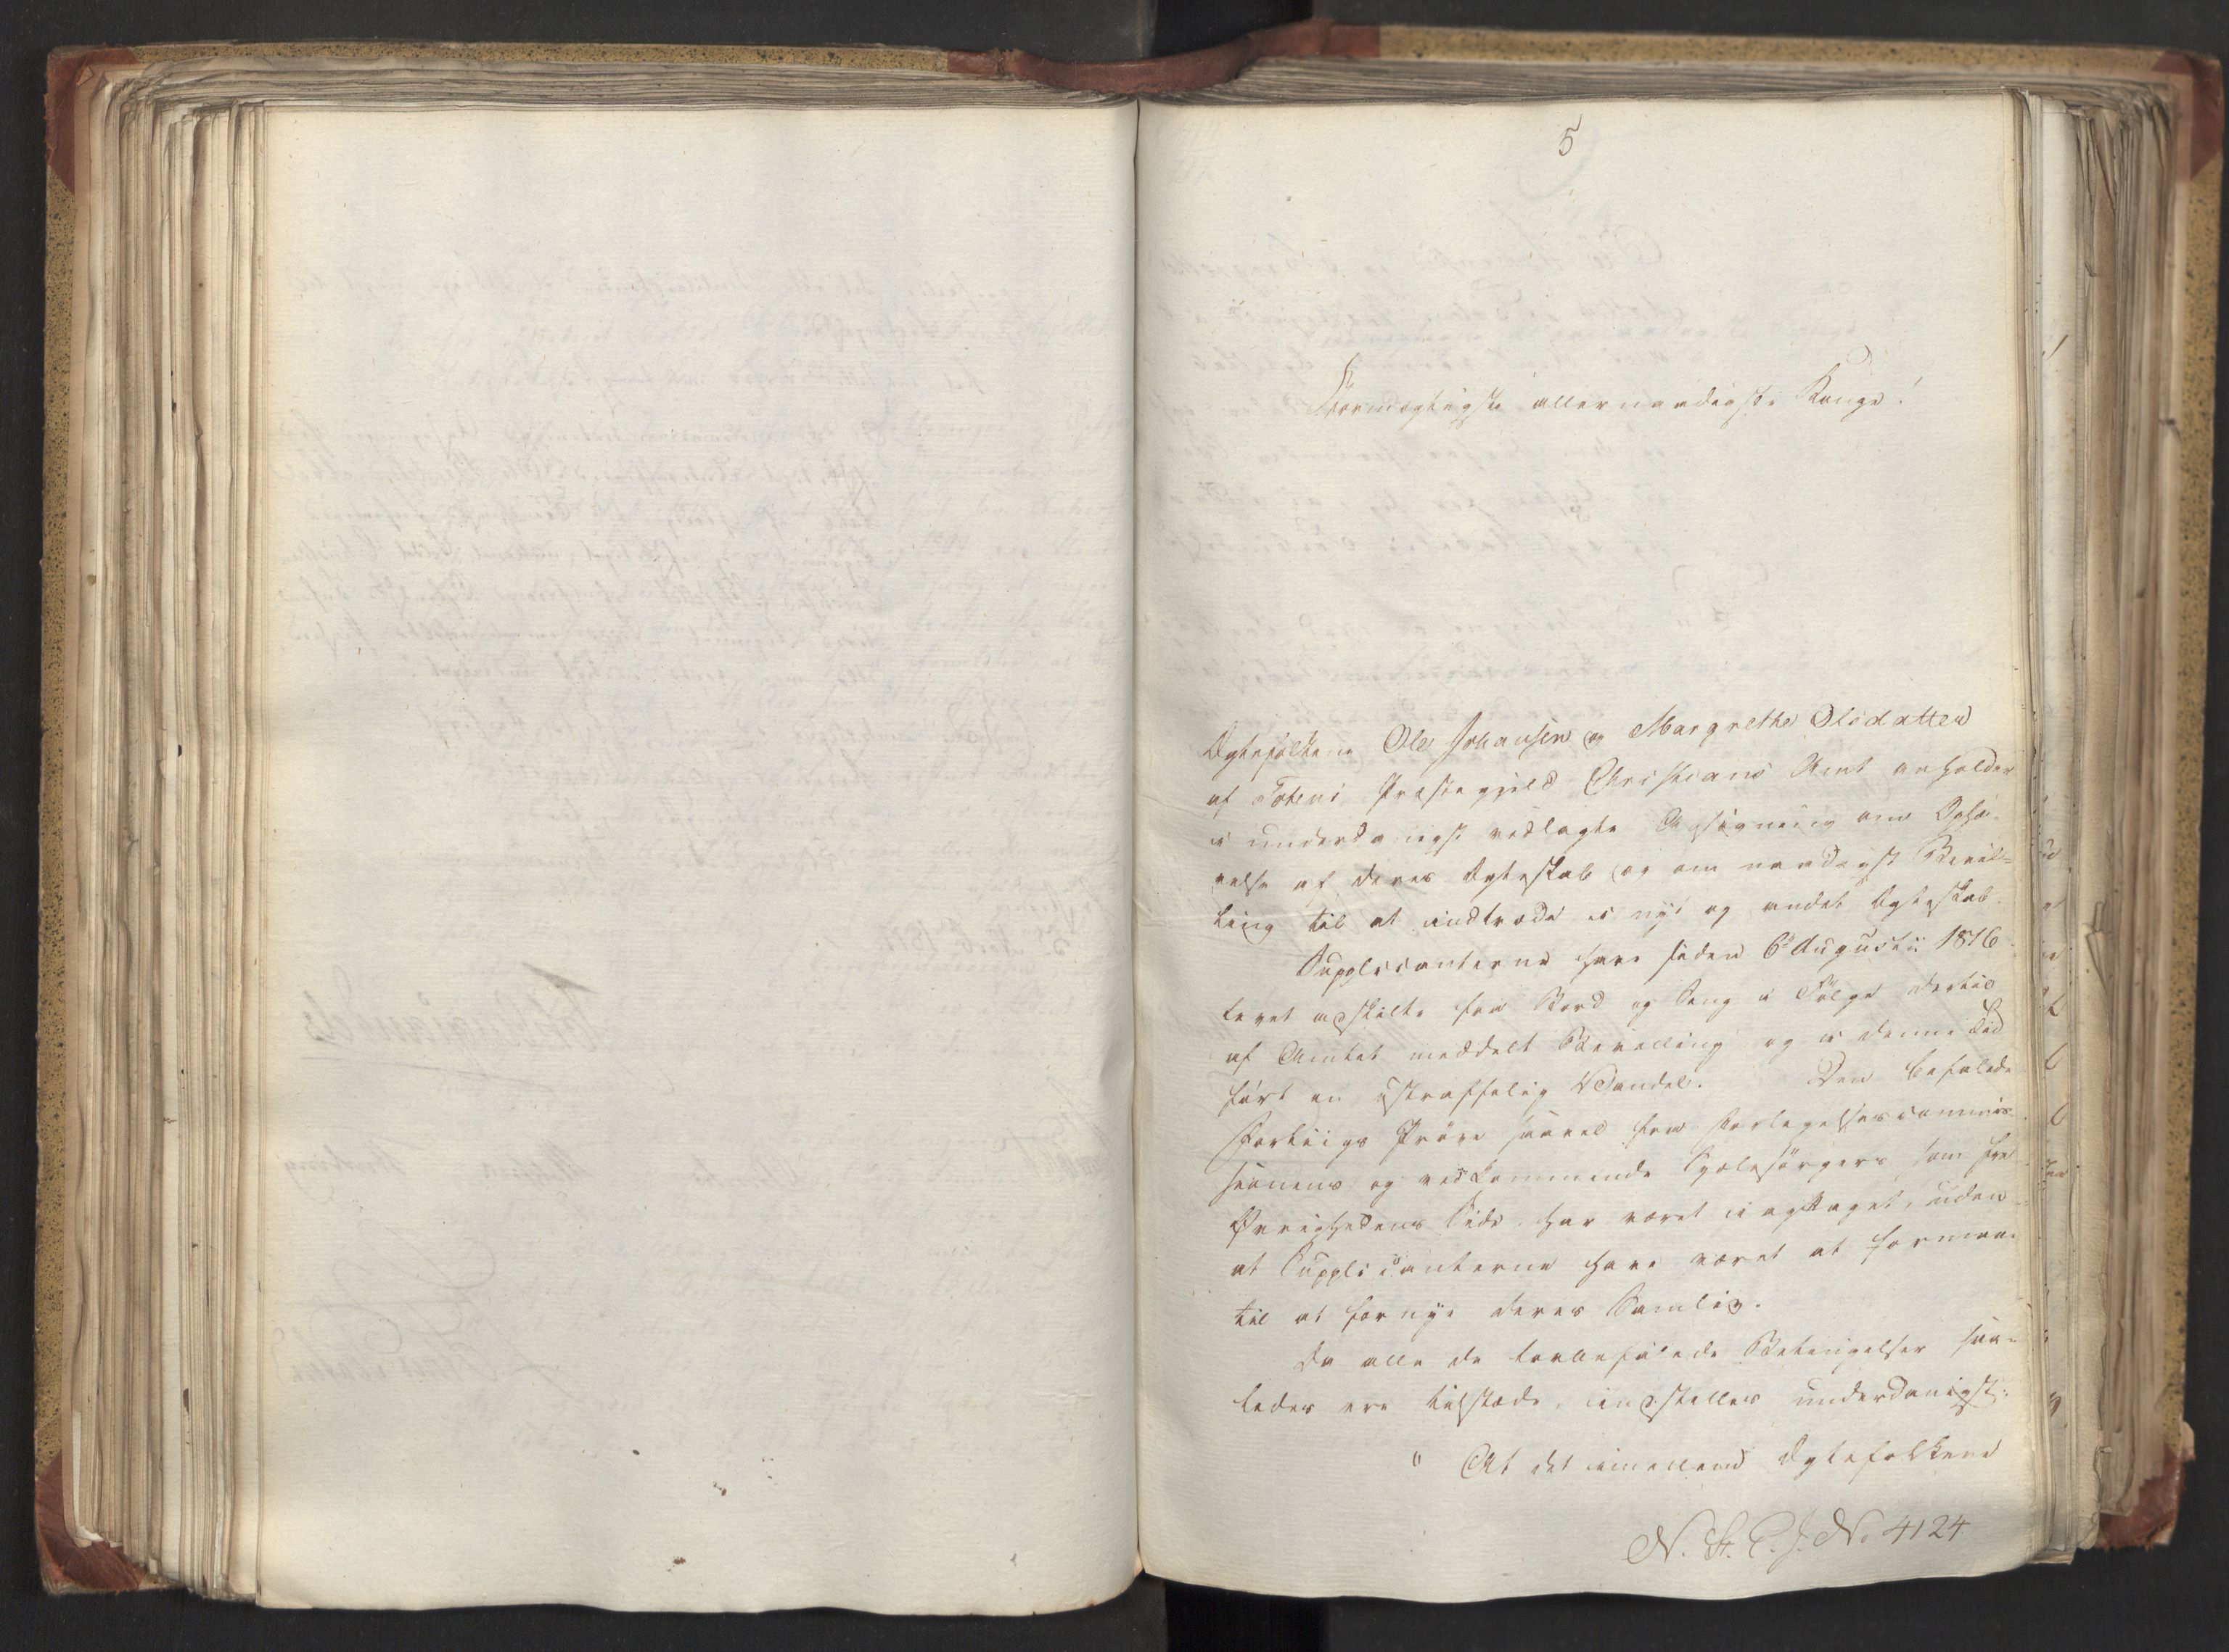 5
Stormægtigste allernaadigste Konge!
Ægtefolkene Ole Johansen og Margrethe Olsdatter
af Totens Præstegjeld Christians Amt anholder
i underdanigst vedlagte Ansøgning om Ophæ-
velse af deres Ægteskab og om naadigst Bevil-
ling til at indtræde i nyt og andet Ægteskab.
Supplicanterne have siden 6te Augusti 1816
levet adskilte fra Bord og Seng i Følge dertil
af Amtet meddelt Bevilling og i denne Tid
ført en ustraffelig Vandel. Den befalede
Forliigs Prøve saavel fra Forligelsescommis-
sionens og vedkommende Sjælesørgers som fra
Øvrighedens Side har været iagttaget, uden
at Supplicanterne have været at formaae
til at fornye deres Samliv.
Da alle de lovbefalede Betingelser saa-
ledes ere tilstæde, indstilles underdanigst:
" At det imellem Ægtefolkene
N. St. E. J. No 4124